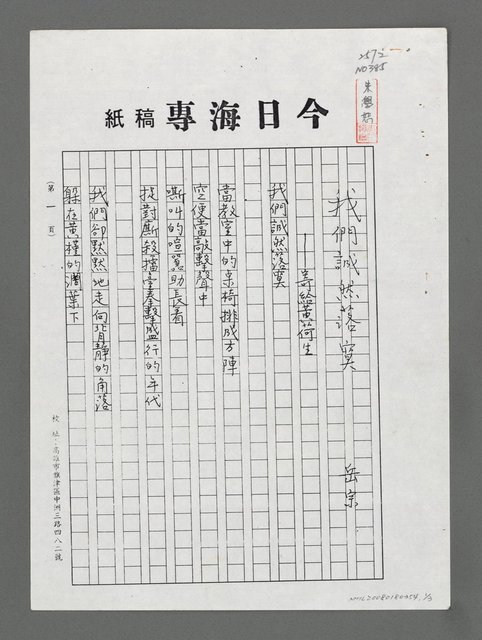 257之一
NO385
今日海專稿紙
我們誠然落寞
岳宗
——寄給黃荷生
我們誠然落寞
當教室中的桌椅排成方陣
空便當敲擊聲中
嘶叫的喧囂助長着
捉對廝殺擂臺拳擊盛行的年代
我們卻默默地走向背靜的角落
躲在黃槿的濶葉下
(第一頁)
校址：高雄市旗津區中洲三路四八二號
NMTL20080180354 1/3